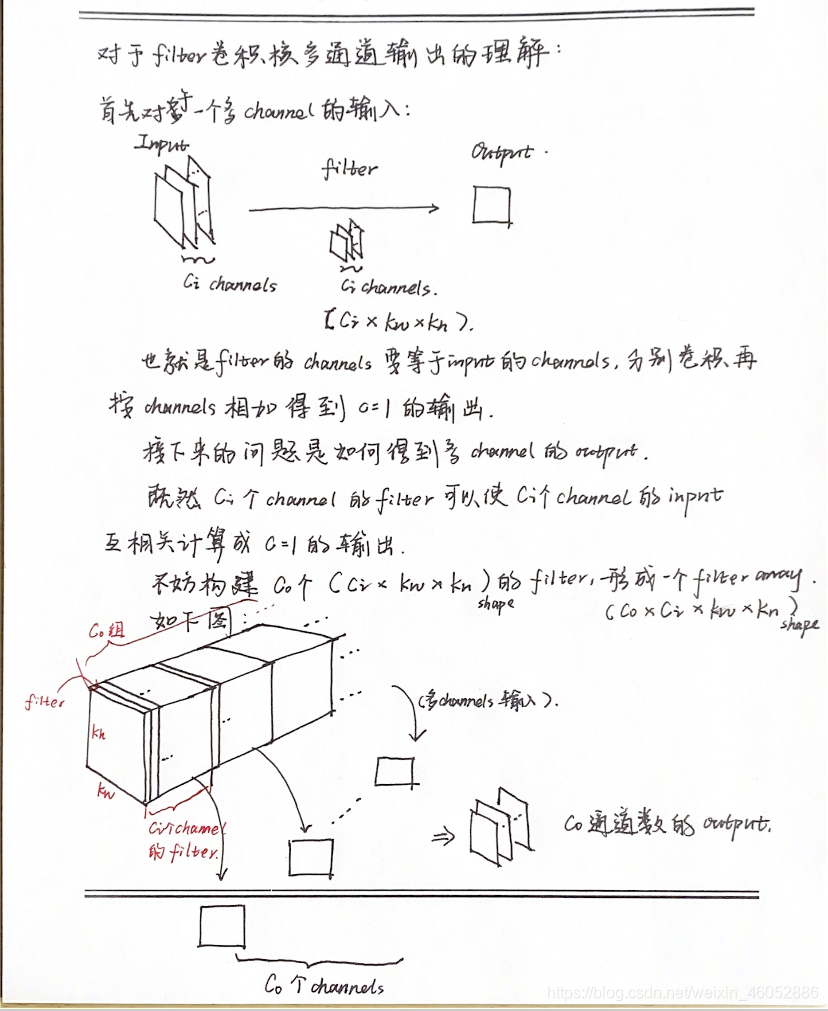 对于filter卷积核多通道输出的理解:
首先对于一个多channel的输入:
Input
filter
Output.
Ci channels
Ci channels.
(Ci × kw × kh).
也就是filter的channels要等于input的channels,分别卷积再
按channels相加得到c=1的输出.
接下来的问题是如何得到多channel的output.
既然Ci个channel的filter可以使Ci个channel的input
互相关计算成C=1的输出.
不妨构建Co个(Ci × kw × kh)shape的filter,形成一个filter array.
(Co × Ci × kw × kh)shape
如下图:
Co组
filter
kh
kw
Ci个channel
的filter.
(多channels输入).
⇒ Co通道数的output.
Co个channels
https://blog.csdn.net/weixin_46052886